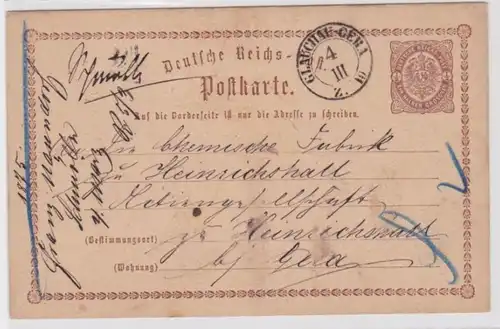 Deutsche Reichs-
Postkarte.
GLAUCHAU-GERA
4
III
Z.
Auf die Vorderseite ist nur die Adresse zu schreiben.
Schmölln
Die chemische Fabrik
zu Heinrichshall
Actiengesellschaft
(Bestimmungsort) zu Heinrichshall
(Wohnung) bei Gera
1875
Schmölln